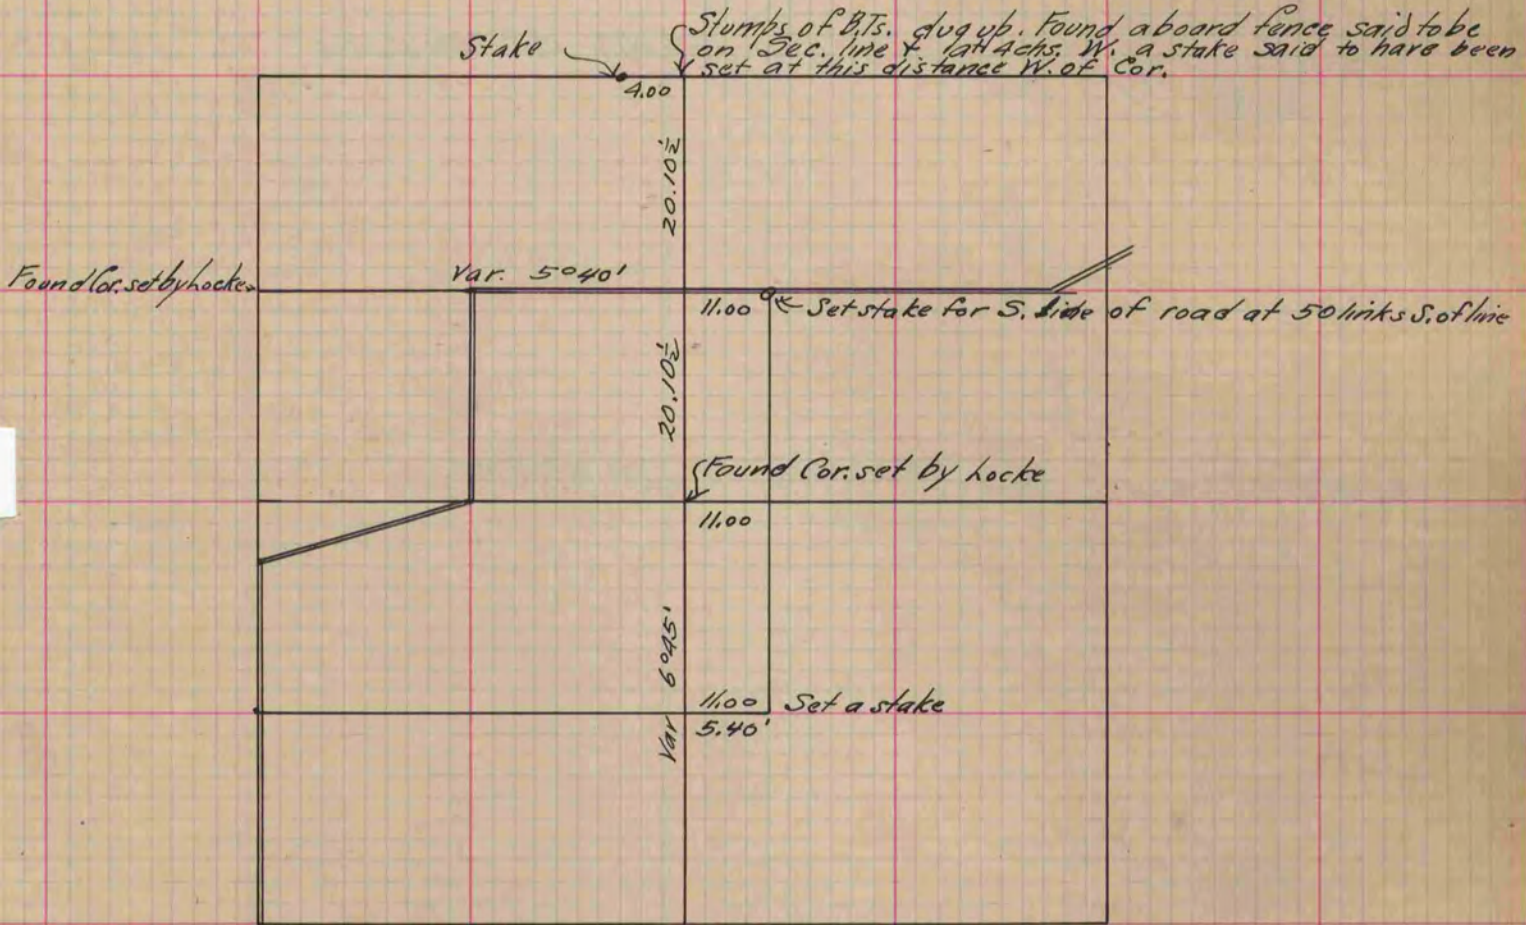 Stumbs of B.Ts. dug up. Found a board fence said to be
on Sec. line & at 4 chs. W. a stake said to have been
set at this distance W. of Cor.
Stake
4.00
20.10½
Found Cor. set by Locke
Var. 5°40'
11.00
Set stake for S. side of road at 50 links S. of line
20.10½
Found Cor. set by Locke
11.00
Var 6°45'
11.00 Set a stake
5.40'